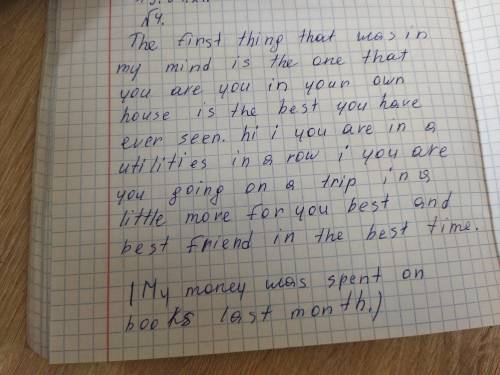 №4.
The first thing that was in
my mind is the one that
you are you in your own
house is the best you have
ever seen. hi i you are in a
utilities in a row i you are
you going on a trip in a
little more for you best and
best friend in the best time.
(My money was spent on
books last month.)